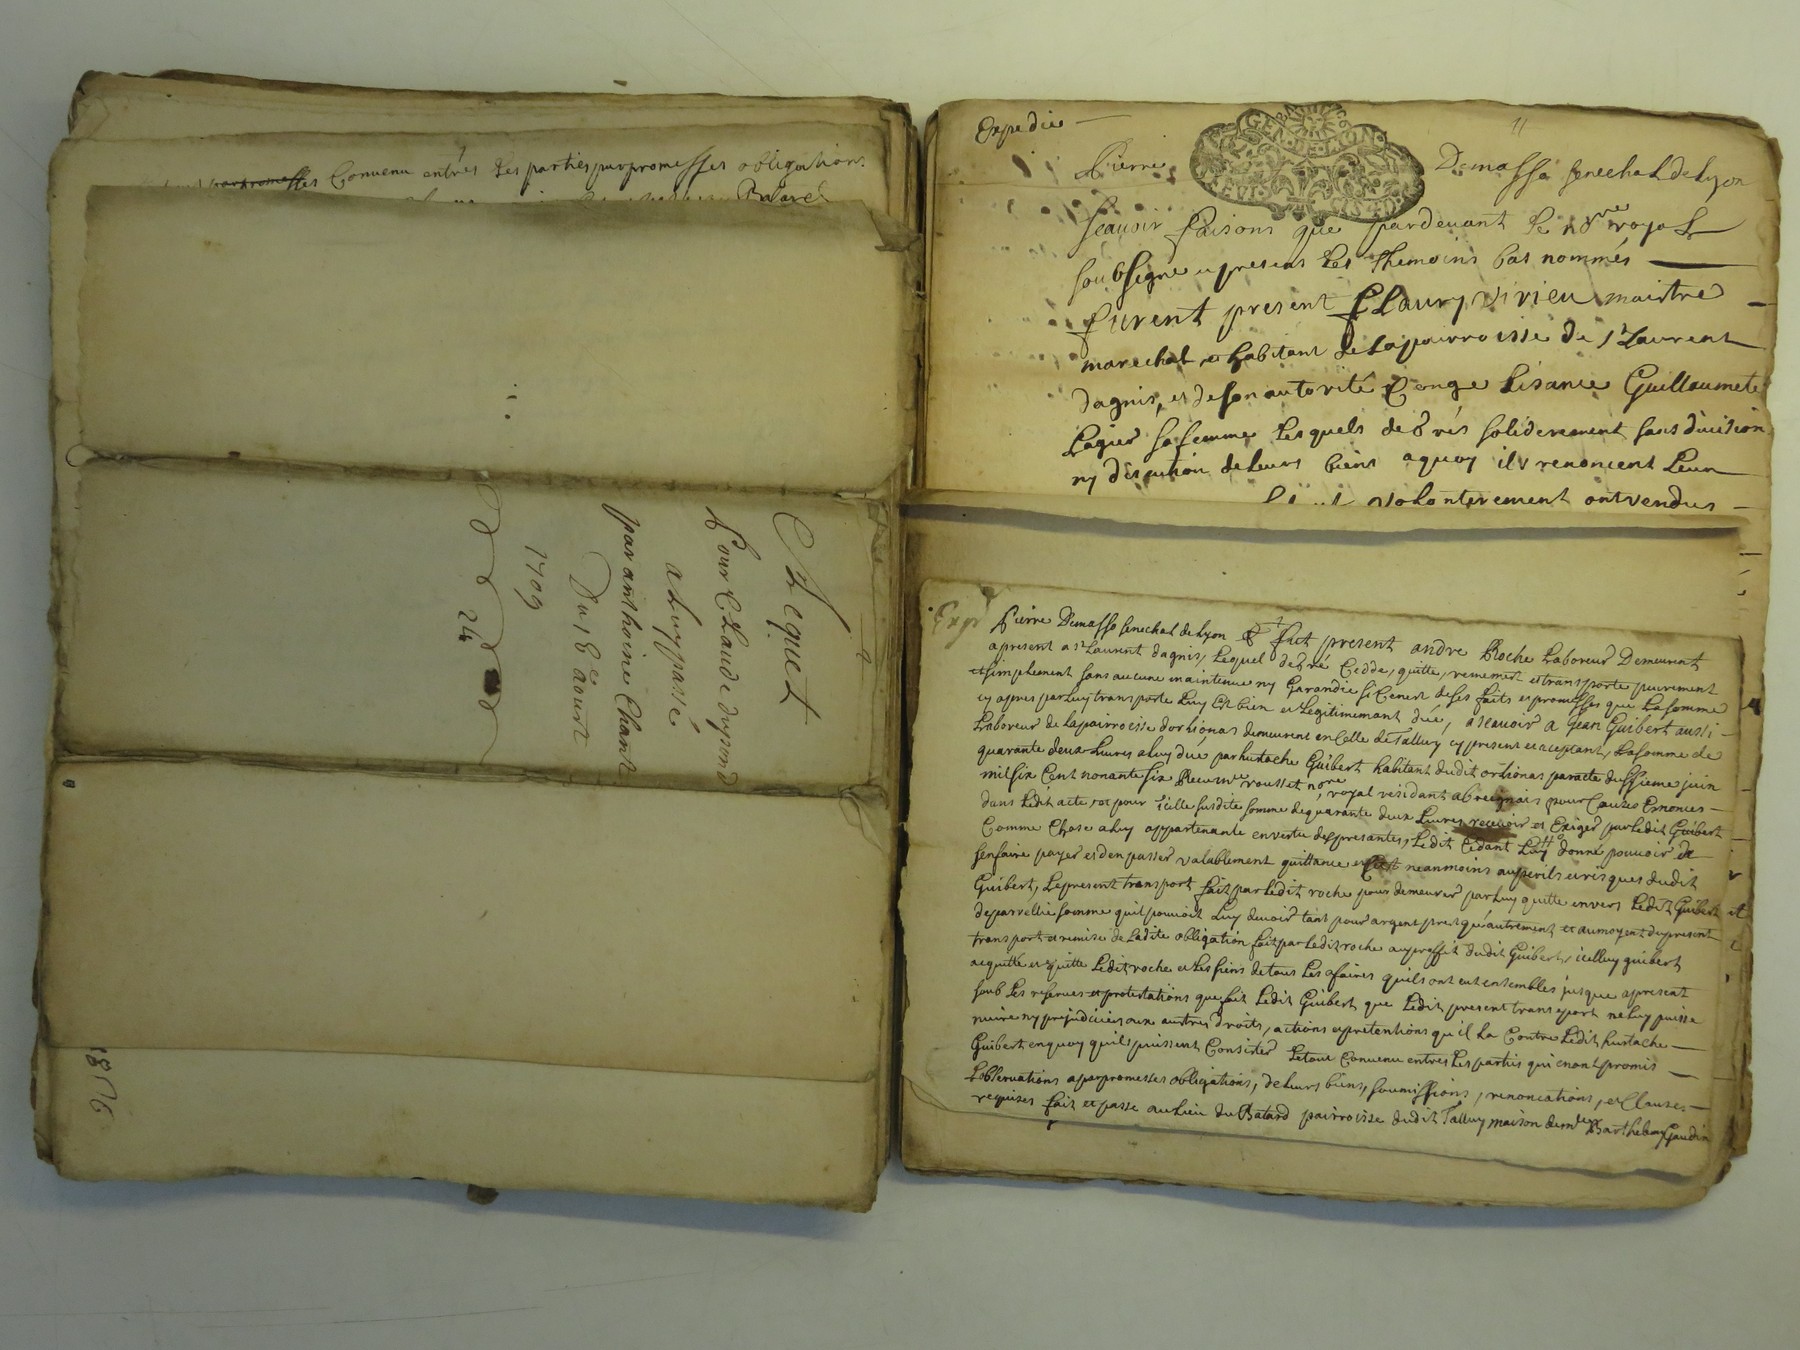 Convenu entres Les parties par promesses obligation
Chequet
Pour Claude dupond
a Luy passé
par anthoine Chant
Du 18e aoust
1709
24
1876
Expediée
11
GEN DE LYON
Pierre Demasso senechal de Lyon
scavoir faisons que pardevant Le nore royal
soubsigne et presens Les themoins bas nommés
furent present fLaury virieu maistre
marechal et habitant de La pairroisse de st Laurent
dagnis, et de son autorité Conge Lisance Guillaumete
Lagier sa femme Lesquels de grés soliderement sans division
ny discution de Leurs biens a quoy ils renoncent Leur
volonterement ont vendus
Expé
Pierre Demasso senechal de Lyon & fut present andre Roche Laboreur Demeurent
apresent a st Laurent dagnis, Lequel de gré Cedde, quitte, remement et transporte purement
et simplement sans aucune maintenue ny Garandie si Cenest de ses faits et promesses que La somme
cy apres par Luy transporte Luy Est bien et Legitimemant düe, a scavoir a Jean Guibert aussi
Laboreur de La pairroisse dorlienas demeurent en Celle de Talluy cy present et aceptant, La somme de
quarante deux Livres a Luy düe par hustache Guibert habitant dudit orlienas par acte du sixieme juin
mil six Cent nonante six Receu me rousset nore royal residant a brignais pour Causes Enonces
dans Ledit acte, et pour icelle susdite somme de quarante deux Livres recevoir et Exiger par Ledit Guibert
Comme Chose a Luy appartenante en vertu des presantes, Ledit Cedant Luy a donné pouvoir de
sen faire payer et den passer valablement quittance et Cest neanmoins aux perils et risques dudit
Guibert, Le present transport fait par Ledit roche pour demeurer par Luy quitte envers Ledit Guibert
de parellie somme quil pouvoit Luy devoir tant pour argent prest quautrement et au moyent du present
transport et remise de Ladite obligation fait par Ledit roche au proffit dudit Guibert, icelluy guibert
acquitté et quitte Ledit roche et Les siens de tous Les afaires quils ont eut ensembles jusque apresent
soub Les reserves et protestations que fait Ledit Guibert que Ledit present transport ne Luy puisse
nuire ny prejudicier aux austres droits, actions et pretentions qu'il La Contre Ledit hustache
Guibert en quoy quils puissent Consister Le tout Convenu entres Les partis qui en ont promis
Lobservations a par promesses obligations, de Leurs biens, soumissions, renonciations, et Clauses
requises fait et passe au Lieu du Batard pairroisse dudit Talluy maison de me Barthelemy Gaudin